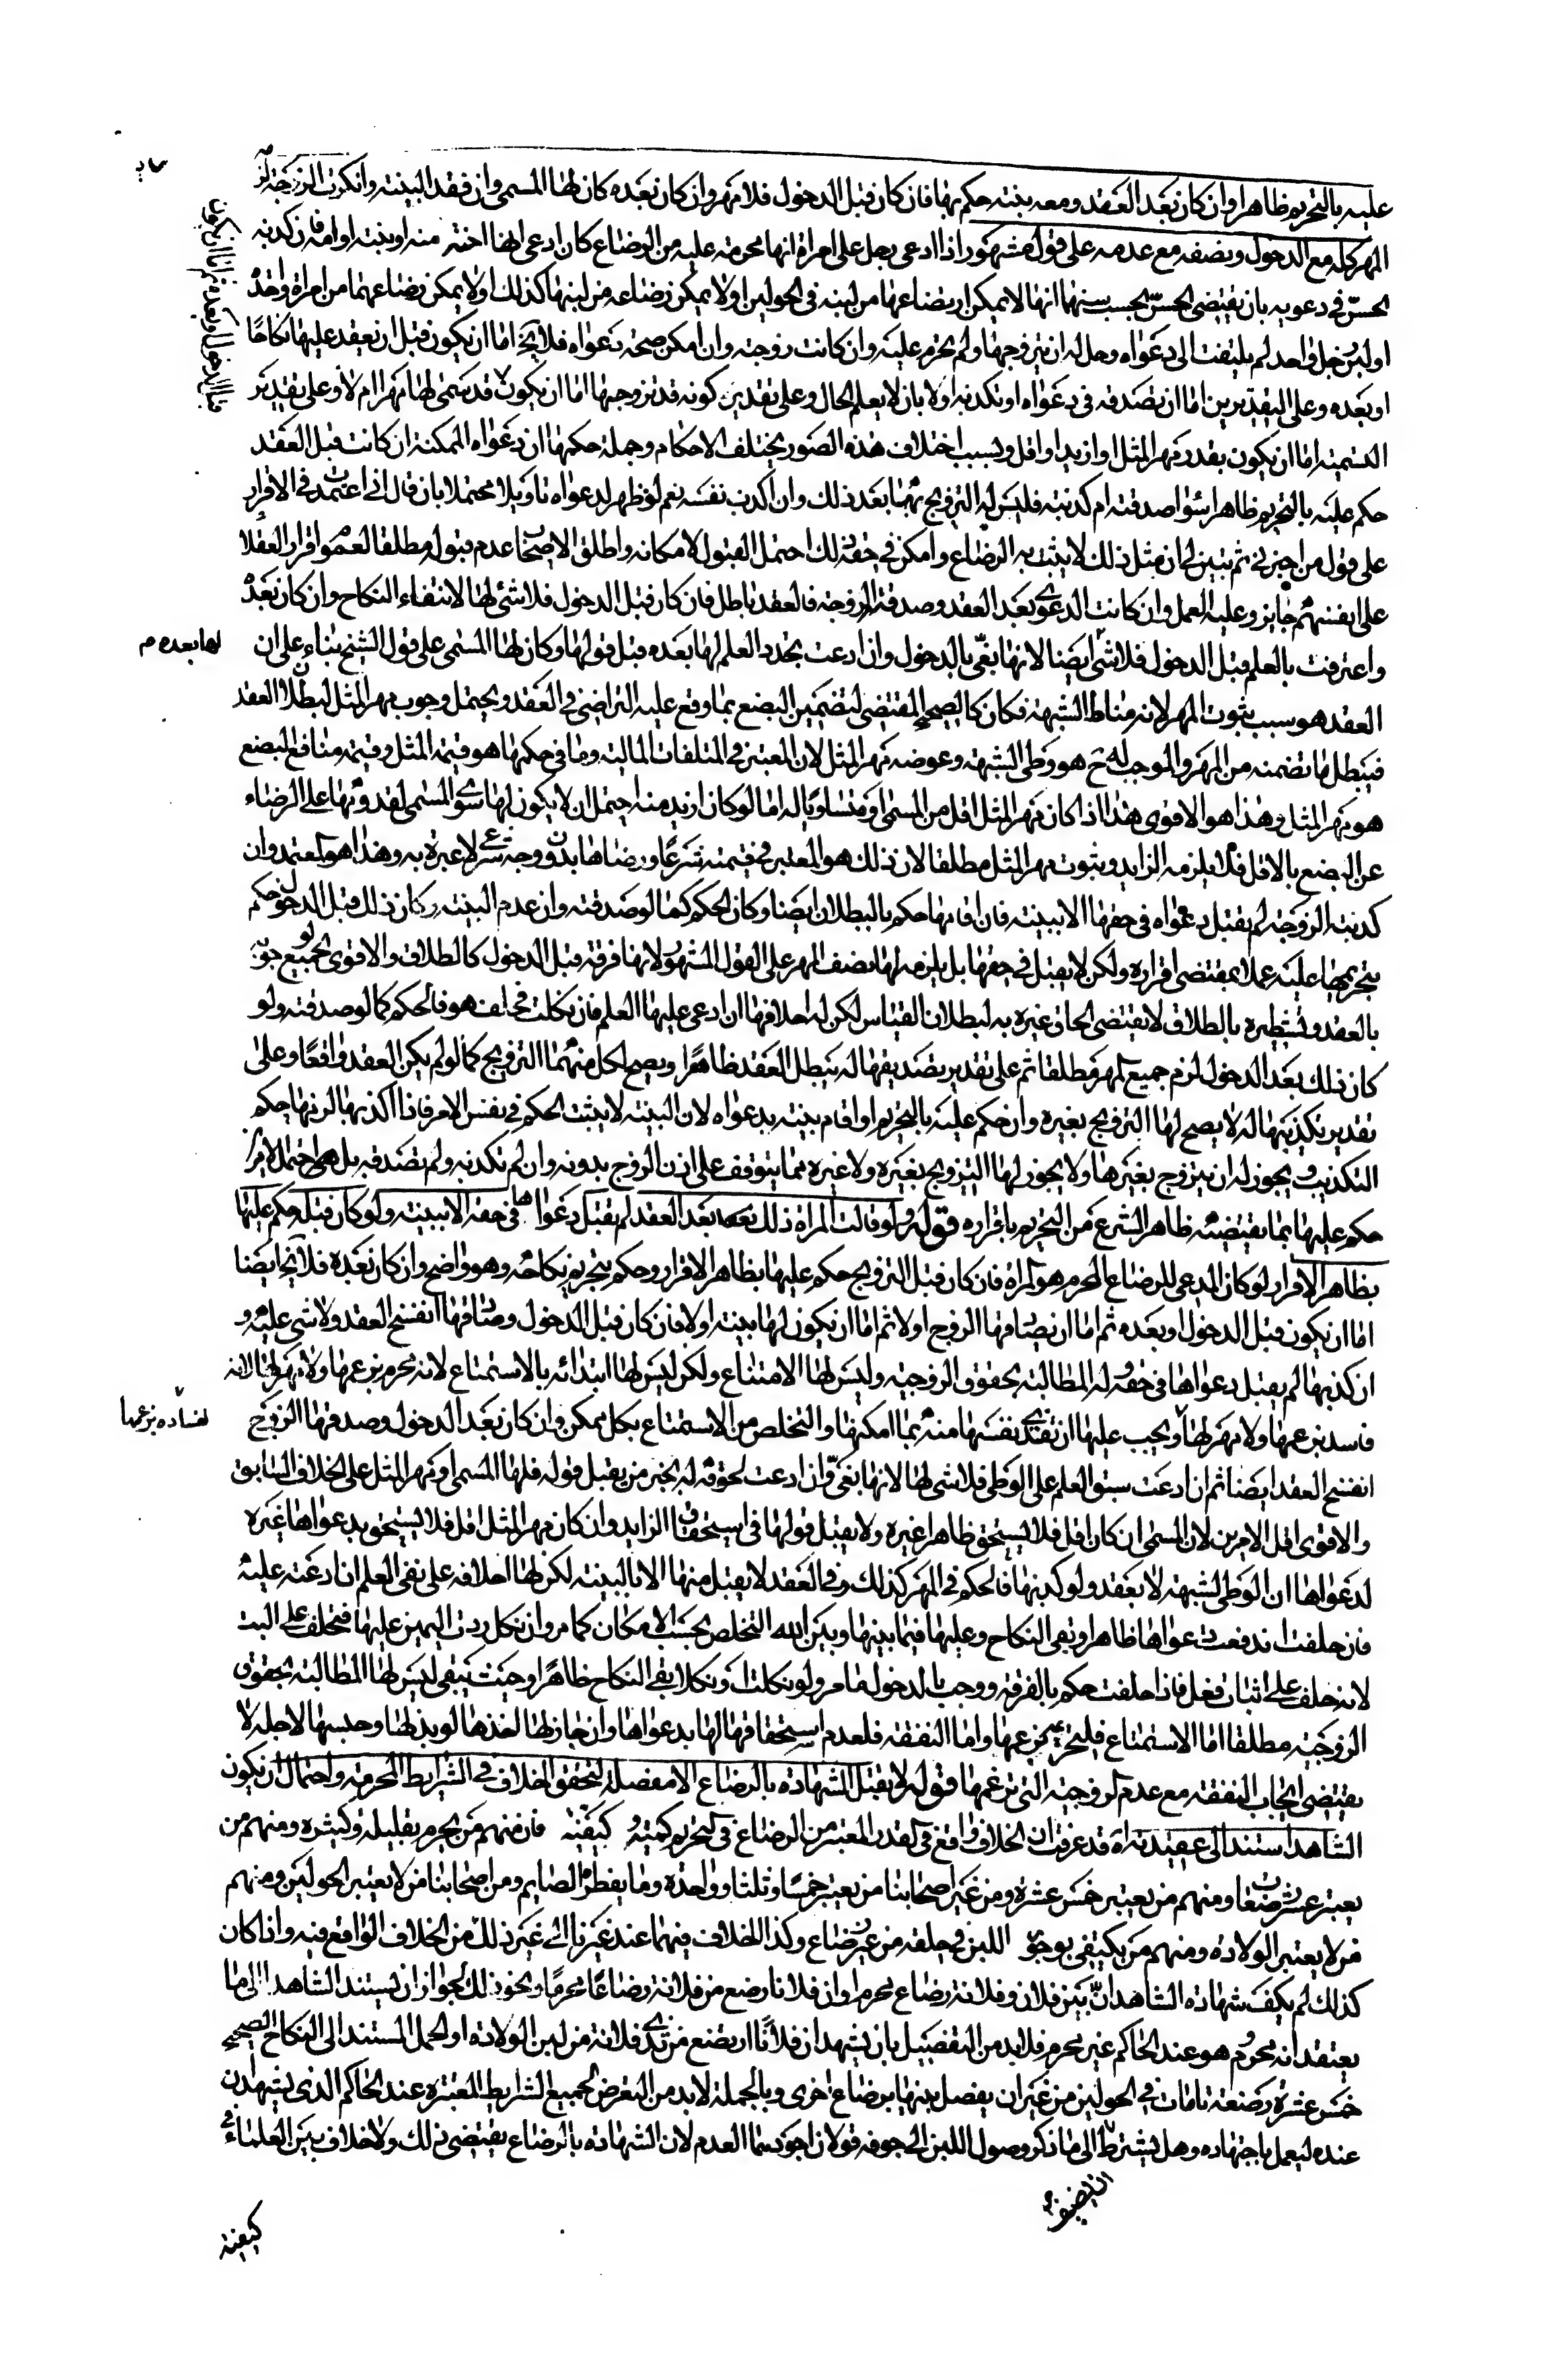 عليه بالتحريم ظاهرا وان كان بعد العقد ومعه بينة حكم بها فان كان قبل الدخول فلا مهر وان كان بعده كان لها المسمى وان فقد البينة وانكرت الزوجة لزمه
المهر كله مع الدخول ونصفه مع عدمه على قول مشهور اذا ادعى رجل على امراة انها محرمة عليه من الرضاع كان ادعى انها اخته منه او بنته او امه فان كذبه
الحسّ في دعويه بان يقتضى الحسّ بحسب سنهما انها لا يمكن ارتضاعها من لبنه في الحولين او لا يمكن رضاعه من لبنها كذلك او لا يمكن رضاعهما من امراة واحدة
او لبن رجل واحد لم يلتفت الى دعواه وحل له ان يتزوجها ولم تحرم عليه وان كانت زوجته وان امكن صحة دعواه فلا يخ اما ان يكون قبل ان يعقد عليها نكاحا
او بعده وعلى التقديرين اما ان تصدقه في دعواه او تكذبه او لا بان لا يعلم الحال وعلى تقدير كونه قد تزوجها اما ان يكون قد سمى لها مهرا ام لا وعلى تقدير
التسمية اما ان يكون بقدر مهر المثل او ازيد او اقل وبسبب اختلاف هذه الصور يختلف الاحكام وجملة حكمها ان دعواه الممكنة ان كانت قبل العقد
حكم عليه بالتحريم ظاهرا سواء صدقته ام كذبته فليس له التزويج بها بعد ذلك وان اكذب نفسه نعم لو ظهر لدعواه تاويلا محتملا بان قال اني اعتمدت في الاقرار
على قول من اخبرني ثم تبين لي ان مثل ذلك لا يثبت به الرضاع وامكن في حقه ذلك احتمل القبول لامكانه واطلق الاصحاب عدم قبوله مطلقا لعموم اقرار العقلا
على انفسهم جايز وعليه العمل وان كانت الدعوى بعد العقد وصدقته الزوجة فالعقد باطل فان كان قبل الدخول فلا شئ لها لانتفاء النكاح وان كان بعده
واعترفت بالعلم قبل الدخول فلا شئ ايضا لانها بغى بالدخول وان ادعت تجدد العلم لها بعده قبل قولها وكان لها المسمى على قول الشيخ بناء على ان
العقد هو سبب ثبوت المهر لانه مناط الشبهة فكان كالصحيح المقتضى لتضمين البضع بما وقع عليه التراضى في العقد ويحتمل وجوب مهر المثل لبطلان العقد
فيبطل ما تضمنه من المهر والموجب له ح هو وطى الشبهة وعوضه مهر المثل لان المعتبر في المتلفات المالية وما في حكمها هو قيمة المثل وقيمة منافع البضع
هو مهر المثل وهذا هو الاقوى هذا اذا كان مهر المثل اقل من المسمى او متساويا له اما لو كان ازيد منه احتمل ان لا يكون لها سوى المسمى لقدومها على الرضاء
عن البضع بالاقل فلا يلزمه الزايد وثبوت مهر المثل مطلقا لان ذلك هو المعتبر في قيمته شرعا ورضاها بدون وجه شرعى لا عبرة به وهذا هو المعتمد وان
كذبته الزوجة لم يقبل دعواه في حقها الا ببينة فان اقامها حكم بالبطلان ايضا وكان الحكم كما لو صدقته وان عدم البينة وكان ذلك قبل الدخول حكم
بتحريمها عليه عملا بمقتضى اقراره ولكن لا يقبل في حقها بل يلزمه لها نصف المهر على القول المشهور لانها فرقة قبل الدخول كالطلاق والاقوى الجميع لوجوبه
بالعقد وتشطيره بالطلاق لا يقتضى الحاق غيره به لبطلان القياس لكن له احلافها ان ادعى عليها العلم فان نكلت فحلف هو فالحكم كما لو صدقته ولو
كان ذلك بعد الدخول لزم جميع المهر مطلقا ثم على تقدير تصديقها له يبطل العقد ظاهرا ويصح لكل منهما التزويج كما لو لم يكن العقد واقعا وعلى
تقدير تكذيبها له لا يصح لها التزويج بغيره وان حكم عليه بالتحريم او اقام بينة بدعواه لان البينة لا يثبت الحكم في نفس الامر فاذا اكذبها لزمها حكم
التكذيب ويجوز له ان يتزوج بغيرها ولا يجوز لها التزويج بغيره ولا غيره مما يتوقف على اذن الزوج بدونه وان لم تكذبه ولم تصدقه بل احتمل الامران
حكم عليها بما يقتضيه ظاهر الشرع من التحريم باقراره قوله ولو قالت المراة ذلك بعد العقد لم يقبل دعواها في حقه الا ببينة ولو كان قبله حكم عليها
بظاهر الاقرار لو كان المدعى للرضاع المحرم هو المراة فان كان قبل التزويج حكم عليها بظاهر الاقرار وحكم بتحريم نكاحه وهو واضح وان كان بعده فلا يخ ايضا
اما ان يكون قبل الدخول او بعده ثم اما ان يصادقها الزوج او لا ثم اما ان يكون لها بينة او لا فان كان قبل الدخول وصادقها انفسخ العقد ولا شئ عليه و
ان كذبها لم يقبل دعواها في حقه وله المطالبة بحقوق الزوجية وليس لها الامتناع ولكن ليس لها ابتدائه بالاستمتاع لانه محرم بزعمها ولا مهر لها لانه
فاسد بزعمها ولا مهر لها ويجب عليها ان تفتدى نفسها منه بما امكنها والتخلص من الاستمتاع بكل ممكن وان كان بعد الدخول وصدقها الزوج
انفسخ العقد ايضا ثم ان ادعت سبق العلم على الوطى فلا شئ لها لانها بغى وان ادعت لحوقه له بخبر من يقبل قوله فلها المسمى او مهر المثل على الخلاف السابق
والاقوى اقل الامرين لان المسمى ان كان اقل فلا يستحق ظاهرا غيره ولا يقبل قولها في استحقاق الزايد وان كان مهر المثل اقل فلا يستحق بدعواها غيره
لدعواها ان الوطى لشبهة لا بعقد ولو كذبها فالحكم في المهر كذلك وفي العقد لا يقبل منها الا بالبينة لكن لها احلافه على نفى العلم ان ادعته عليه
فان حلفت اندفعت دعواها ظاهرا وبقى النكاح وعليها فيما بينها وبين الله التخلص بحسب الامكان كما مر وان نكل ردت اليمين عليها فتحلف على البت
لانه حلف على اثبات فعل فاذا حلفت حكم بالفرقة ووجب بالدخول ما مر ولو نكلت او نكلا بقى النكاح ظاهرا وحيث يبقى ليس لها المطالبة بحقوق
الزوجية مطلقا اما الاستمتاع فلتحريمه بزعمها واما النفقة فلعدم استحقاقها لها بدعواها وان جاز لها اخذها لو بذلها وحبسها لاجله لا
يقتضى ايجاب النفقة مع عدم الزوجية التي تزعمها قوله لا يقبل الشهادة بالرضاع الا مفصلة لتحقق الخلاف في الشرايط المحرمة واحتمال ان يكون
الشاهد استند الى عقيدته قد عرفت ان الخلاف واقع في القدر المعتبر من الرضاع في التحريم كمية وكيفية فان منهم من يحرم بقليله وكثيره ومنهم من
يعتبر عشر رضعا ومنهم من يعتبر خمس عشرة ومن غير اصحابنا من يعتبر خمسا وثلثا وواحدة وما يفطر الصايم ومن اصحابنا من لا يعتبر الحولين ومنهم
من لا يعتبر الولادة ومنهم من يكتفى بوجور اللبن في حلقه من غير رضاع وكذا الخلاف فيهما عند غيرنا الى غير ذلك من الخلاف الواقع فيه واذا كان
كذلك لم يكف شهادة الشاهد انّ بين فلان وفلانة رضاع محرم او ان فلانا رضع من فلانة رضاعا محرما ونحو ذلك لجواز ان يستند الشاهد الى ما
يعتقد انه محرم وهو عند الحاكم غير محرم فلا بد من التفصيل بان يشهد ان فلانا ارتضع من ثدى فلانة من لبن الولادة او الحمل المستند الى النكاح الصحيح
خمس عشرة رضعة تامات في الحولين من غير ان يفصل بينها برضاع اخرى وبالجملة لا بد من التعرض لجميع الشرايط المعتبرة عند الحاكم الذى يشهد
عنده ليعمل باجتهاده وهل يشترط الى ما ذكر وصول اللبن الى جوفه قولان اجودهما العدم لان الشهادة بالرضاع يقتضى ذلك ولا خلاف بين العلماء في
لها بعده م
لفساده بزعمها
كيفية